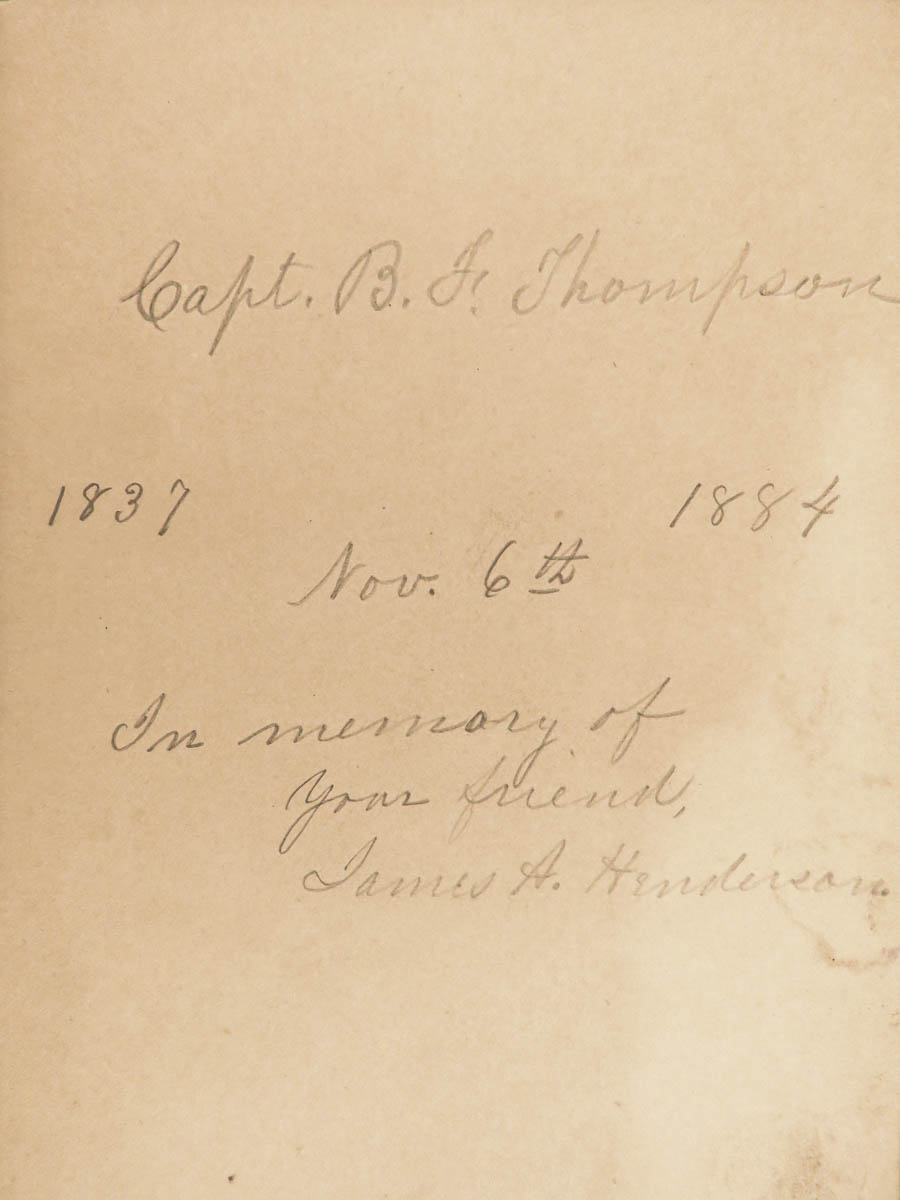 Capt. B. F. Thompson
1837 1884
Nov. 6th
In memory of
your friend,
James A. Henderson.